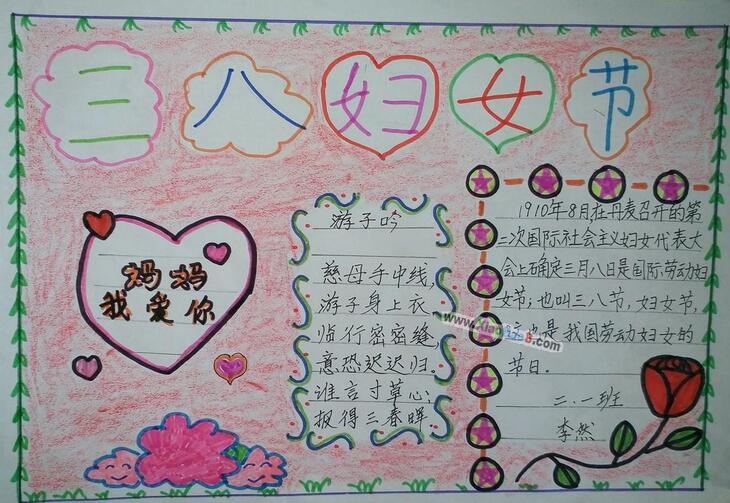 三八妇女节
妈妈
我爱你
游子吟
慈母手中线,
游子身上衣
临行密密缝
意恐迟迟归。
谁言寸草心;
报得三春晖
1910年8月在丹麦召开的第
二次国际社会主义妇女代表大
会上确定三月八日是国际劳动妇
女节;也叫三八节,妇女节,
也是我国劳动妇女的
节日。
二.一班
李然